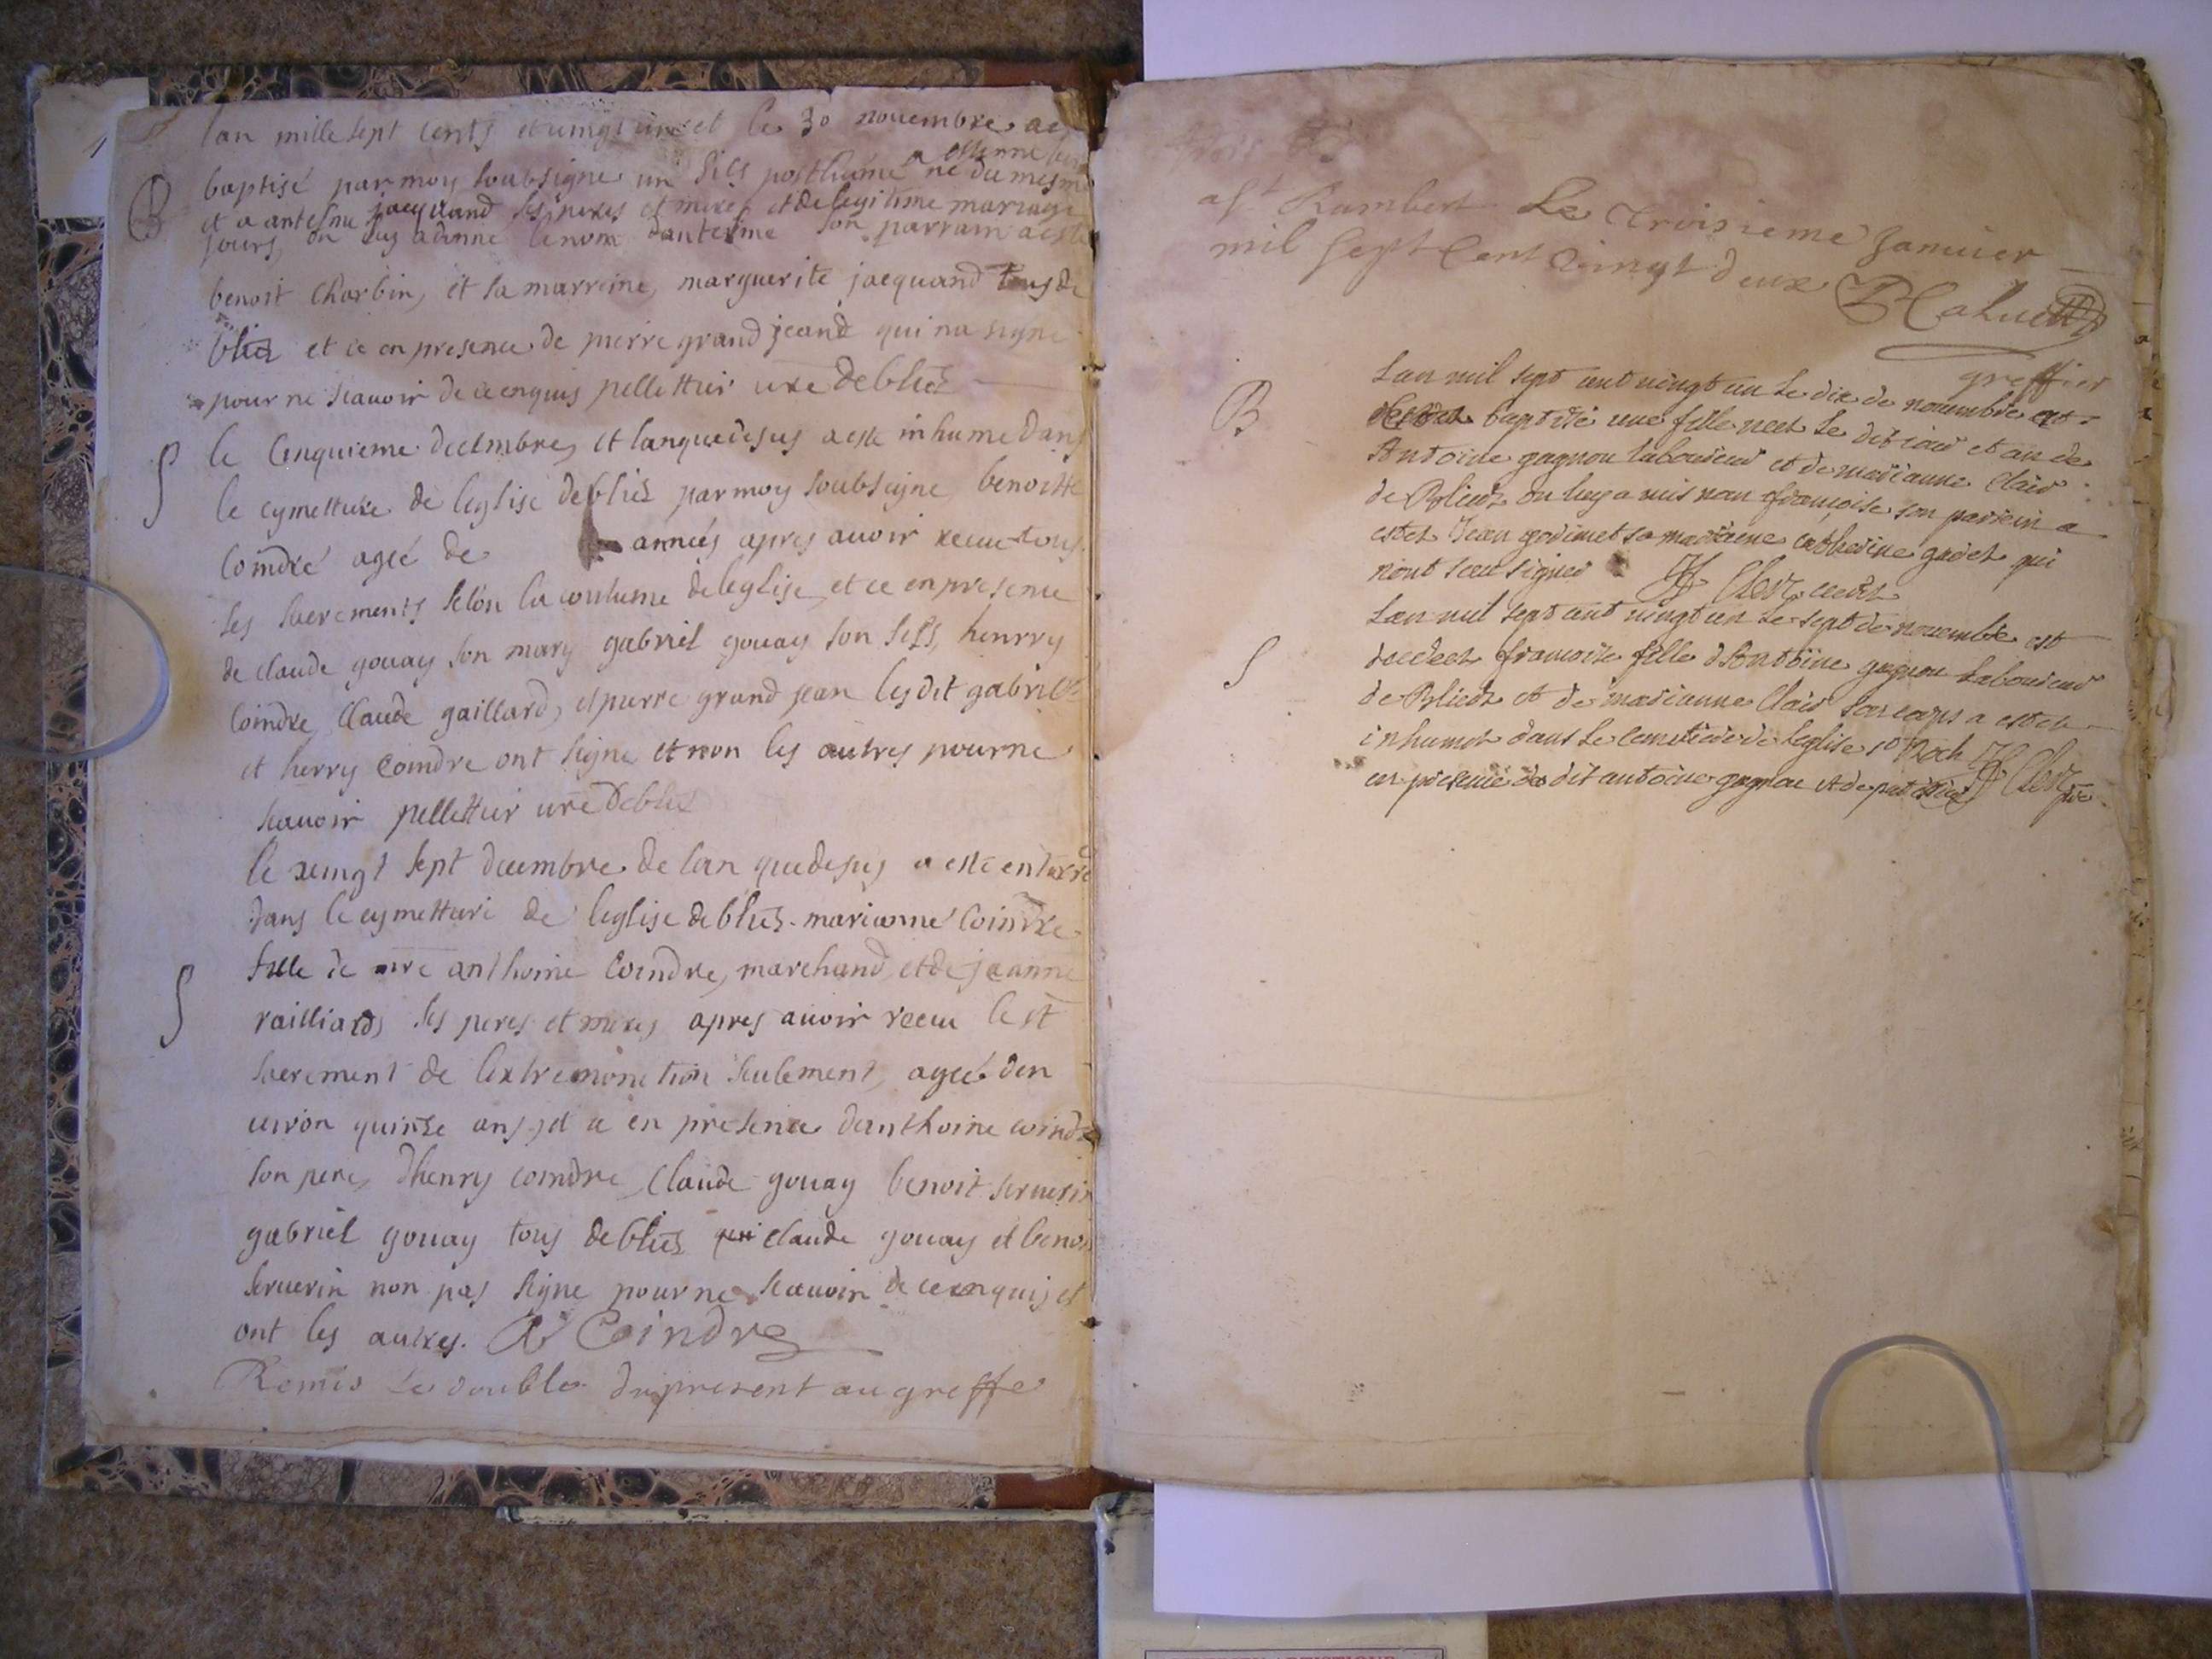 lan mille sept cents et vingt un et le 30 novembre a e
B
baptisé par moy soubsigne un fils posthume né du mesme
a estienne
et a antesme jacquand ses peres et meres et de legitime mariage
jours, on luy a donné le nom dantesme son parrain a este
benoit Charbin, et sa marreine, marguerite jacquand tous de
blies et ce en presence de pierre grand jeand qui na signe
pour ne scavoir de ce enquis pellettier curé de blies
S
le cinquieme decembre, et lan que desus a este inhume dans
le cymettiere de leglise de blies par moy soubsigne, benoitte
Coindre agée de années apres avoir receu tous
ses sacrements selon la coutume de leglise, et ce en presence
de claude gouay son mary gabriel gouay son fils, henrry
Coindre, Claude gaillard, et pierre grand jean lesdit gabriel
et herry Coindre ont signe et non les autres pour ne
scavoir pellettier curé de blies
le veingt sept decembre de lan que desus a este enterré
dans le cymettiere de leglise de blies marianne Coindre
S
fille de anthoine Coindre, marchand, et de jeanne
railliard, ses peres et meres, apres avoir receu le st
sacrement de lextremonction seulement, agée den
viron quinse ans, et ce en presence danthoine coindre
son pere, dhenry coindre, Claude gouay benoit serverin
gabriel gouay tous de blies claude gouay et benoi
serverin non pas signe pour ne scavoir de ce enquis et
ont les autres. Coindre
Remis le double du present au greffe
a st Rambert Le Troisieme Janvier
mil Sept Cent Vingt deux
greffier
B
Lan mil sept cent vingt un le dix de novembre
baptisé une fille neeh le dit jour et an de
Antoine gagnou laboureur et de marianne Clair
de Blieds on luy a mis nom françoise son parrein a
esteh Jean godimet sa marrene catherine gadet qui
nont sceu signer Clerc curés
Lan mil sept cent vingt un le sept de novembre est
S
decedeeh francoise fille dAntoine gagnou laboureur
de Blieds et de marianne Clair son corps a esteh
inhumeh dans le cemetiere de leglise st Roch
en presence de dit antoine gagnou et de Clerc